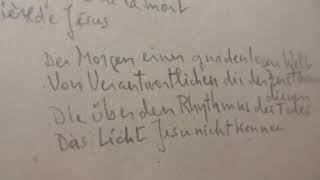 la mort
de Jésus
Der Morgen einer gnadenlosen Welt
Von Verantwortlichen die der
dienen
Die über den Rhythmus des Todes
Das Licht Jesu nicht kennen